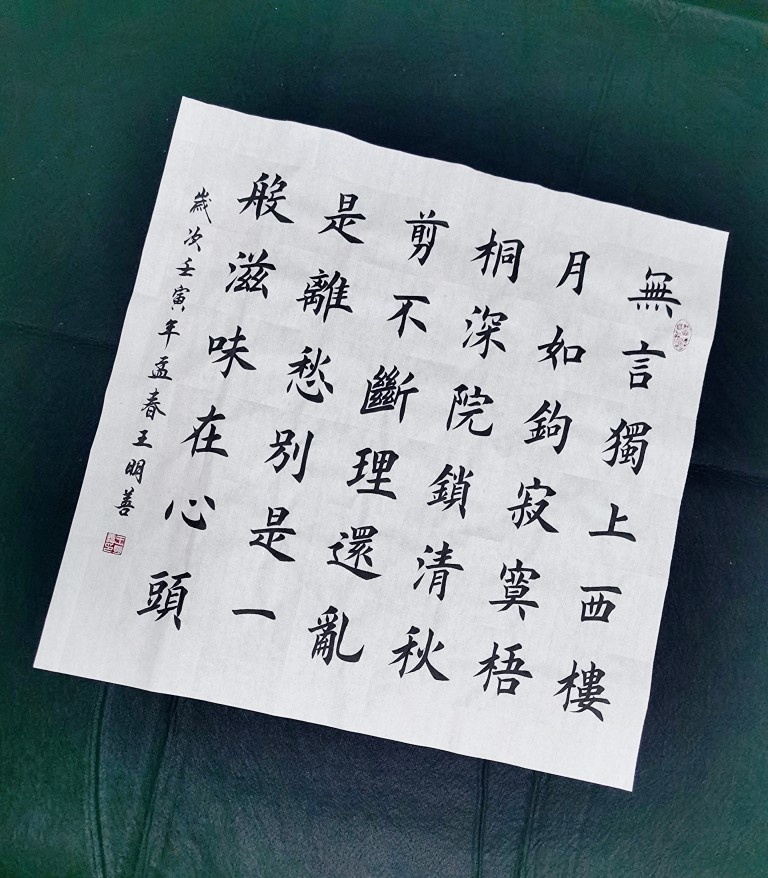 無言獨上西樓
月如鉤寂寞梧
桐深院鎖清秋
剪不斷理還亂
是離愁別是一
般滋味在心頭
歲次壬寅年孟春王明善